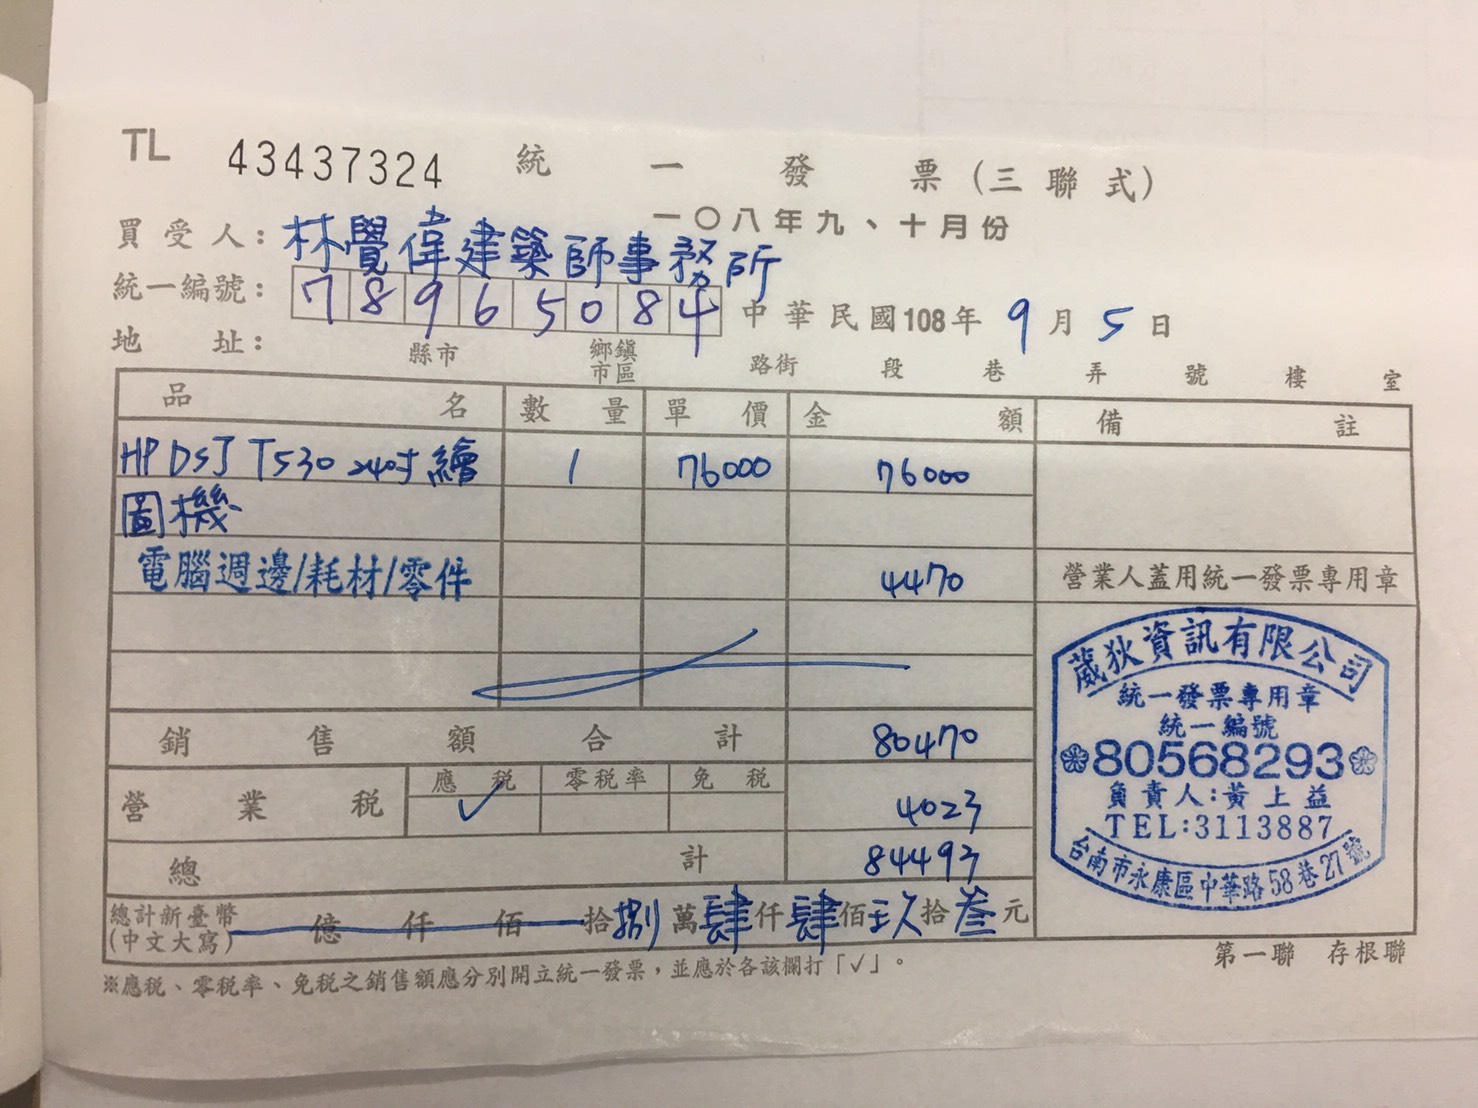 TL 43437324 統一發票(三聯式)
一〇八年九、十月份
買受人:林覺偉建築師事務所
統一編號:78965084 中華民國108年9月5日
地址: 縣市 鄉鎮市區 路街 段 巷 弄 號 樓 室
品名 數量 單價 金額 備註
HP DSJ T530 24吋繪 1 76000 76000
圖機
電腦週邊/耗材/零件 4470
營業人蓋用統一發票專用章
葳狄資訊有限公司
統一發票專用章
統一編號
80568293
負責人:黃上益
TEL:3113887
台南市永康區中華路58巷27號
銷售額合計 80470
營業稅 應稅 ✓ 零稅率 免稅 4023
總計 84493
總計新臺幣(中文大寫) 億仟佰拾捌萬肆仟肆佰玖拾叁元
第一聯 存根聯
※應稅、零稅率、免稅之銷售額應分別開立統一發票,並應於各該欄打「✓」。